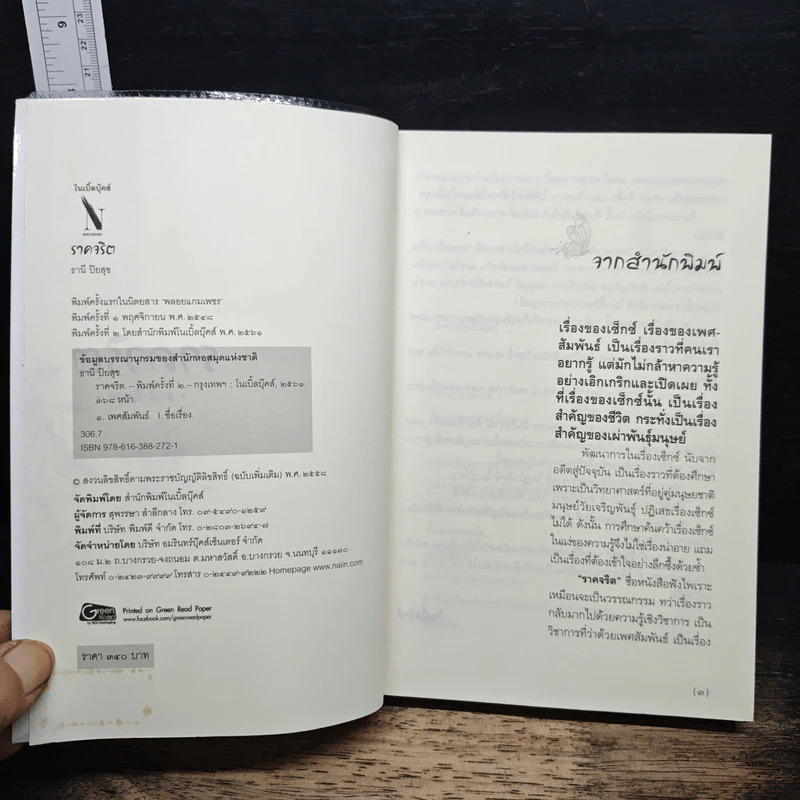 9
23
22
21
โนเบิ้ลบุ๊คส์
N
NOBLE BOOKS
ราคจริต
ธานี ปิยสุข
พิมพ์ครั้งแรกในนิตยสาร 'พลอยแกมเพชร'
พิมพ์ครั้งที่ ๑ พฤศจิกายน พ.ศ. ๒๕๔๘
พิมพ์ครั้งที่ ๒ โดยสำนักพิมพ์โนเบิ้ลบุ๊คส์ พ.ศ. ๒๕๖๑
ข้อมูลบรรณานุกรมของสำนักหอสมุดแห่งชาติ
ธานี ปิยสุข.
ราคจริต. – พิมพ์ครั้งที่ ๒. – กรุงเทพฯ : โนเบิ้ลบุ๊คส์, ๒๕๖๑.
๓๖๘ หน้า.
๑. เพศสัมพันธ์. I. ชื่อเรื่อง.
306.7
ISBN 978-616-388-272-1
© สงวนลิขสิทธิ์ตามพระราชบัญญัติลิขสิทธิ์ (ฉบับเพิ่มเติม) พ.ศ. ๒๕๕๘
จัดพิมพ์โดย สำนักพิมพ์โนเบิ้ลบุ๊คส์
ผู้จัดการ สุพรรษา สำลีกลาง โทร. ๐๙-๕๔๙๐-๑๒๕๙
พิมพ์ที่ บริษัท พิมพ์ดี จำกัด โทร. ๐-๒๘๐๓-๒๖๙๔-๗
จัดจำหน่ายโดย บริษัท อมรินทร์บุ๊คส์เซ็นเตอร์ จำกัด
๑๐๘ ม.๒ ถ.บางกรวย-จงถนอม ต.มหาสวัสดิ์ อ.บางกรวย จ.นนทบุรี ๑๑๑๓๐
โทรศัพท์ ๐-๒๔๒๓-๙๙๙๙ โทรสาร ๐-๒๔๔๙-๙๒๒๒ Homepage www.naiin.com
Green Read
Printed on Green Read Paper
www.facebook.com/greenreadpaper
ราคา ๓๔๐ บาท
จากสำนักพิมพ์
เรื่องของเซ็กซ์ เรื่องของเพศ-
สัมพันธ์ เป็นเรื่องราวที่คนเรา
อยากรู้ แต่มักไม่กล้าหาความรู้
อย่างเอิกเกริกและเปิดเผย ทั้ง
ที่เรื่องของเซ็กซ์นั้น เป็นเรื่อง
สำคัญของชีวิต กระทั่งเป็นเรื่อง
สำคัญของเผ่าพันธุ์มนุษย์
พัฒนาการในเรื่องเซ็กซ์ นับจาก
อดีตสู่ปัจจุบัน เป็นเรื่องราวที่ต้องศึกษา
เพราะเป็นวิทยาศาสตร์ที่อยู่คู่มนุษยชาติ
มนุษย์วัยเจริญพันธุ์ ปฏิเสธเรื่องเซ็กซ์
ไม่ได้ ดังนั้น การศึกษาค้นคว้าเรื่องเซ็กซ์
ในแง่ของความรู้จึงไม่ใช่เรื่องน่าอาย แถม
เป็นเรื่องที่ต้องเข้าใจอย่างลึกซึ้งด้วยซ้ำ
"ราคจริต" ชื่อหนังสือฟังไพเราะ
เหมือนจะเป็นวรรณกรรม ทว่าเรื่องราว
กลับมากไปด้วยความรู้เชิงวิชาการ เป็น
วิชาการที่ว่าด้วยเพศสัมพันธ์ เป็นเรื่อง
(๓)